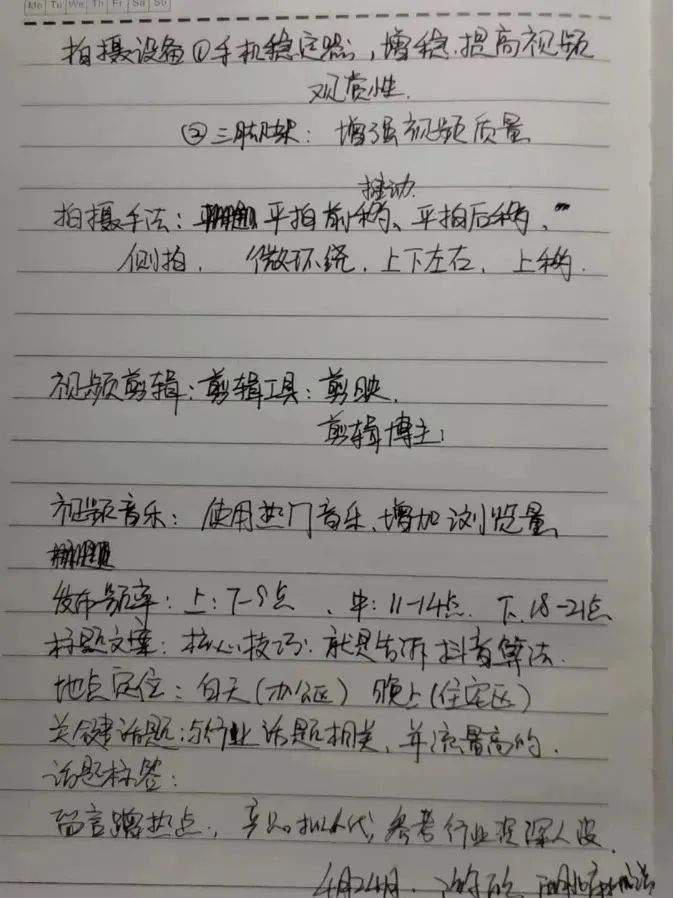 Mo Tu We Th Fr Sa Su
拍摄设备①手机稳定器,增稳.提高视频
观赏性.
②三脚架:增强视频质量
推动.
拍摄手法:平拍前移、平拍后移、
侧拍.微环绕.上下左右.上移.
视频剪辑:剪辑工具:剪映.
剪辑博主:
视频音乐:使用热门音乐.增加浏览量
发布频率:上:7-9点、中:11-14点.下.18-21点
标题文案:核心技巧.就是告诉抖音算法.
地点定位:白天(办公区)晚上(住宅区)
关键话题:与行业话题相关,并流量高的.
话题标签:
留言蹭热点.,参考行业资深人设.
4月24日.